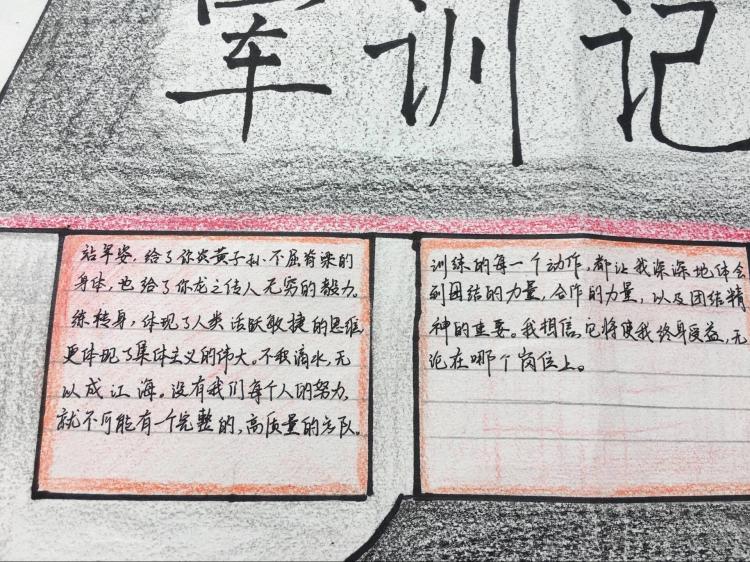 军训记
站军姿，给了你炎黄子孙不屈脊梁的
身体，也给了你龙之传人无穷的毅力。
练转身，体现了人类活跃敏捷的思维，
更体现了集体主义的伟大。不积滴水，无
以成江海。没有我们每个人的努力，
就不可能有一个完整的，高质量的方队。
训练的每一个动作，都让我深深地体会
到团结的力量，合作的力量，以及团结精
神的重要。我相信，它将使我终身受益，无
论在哪个岗位上。